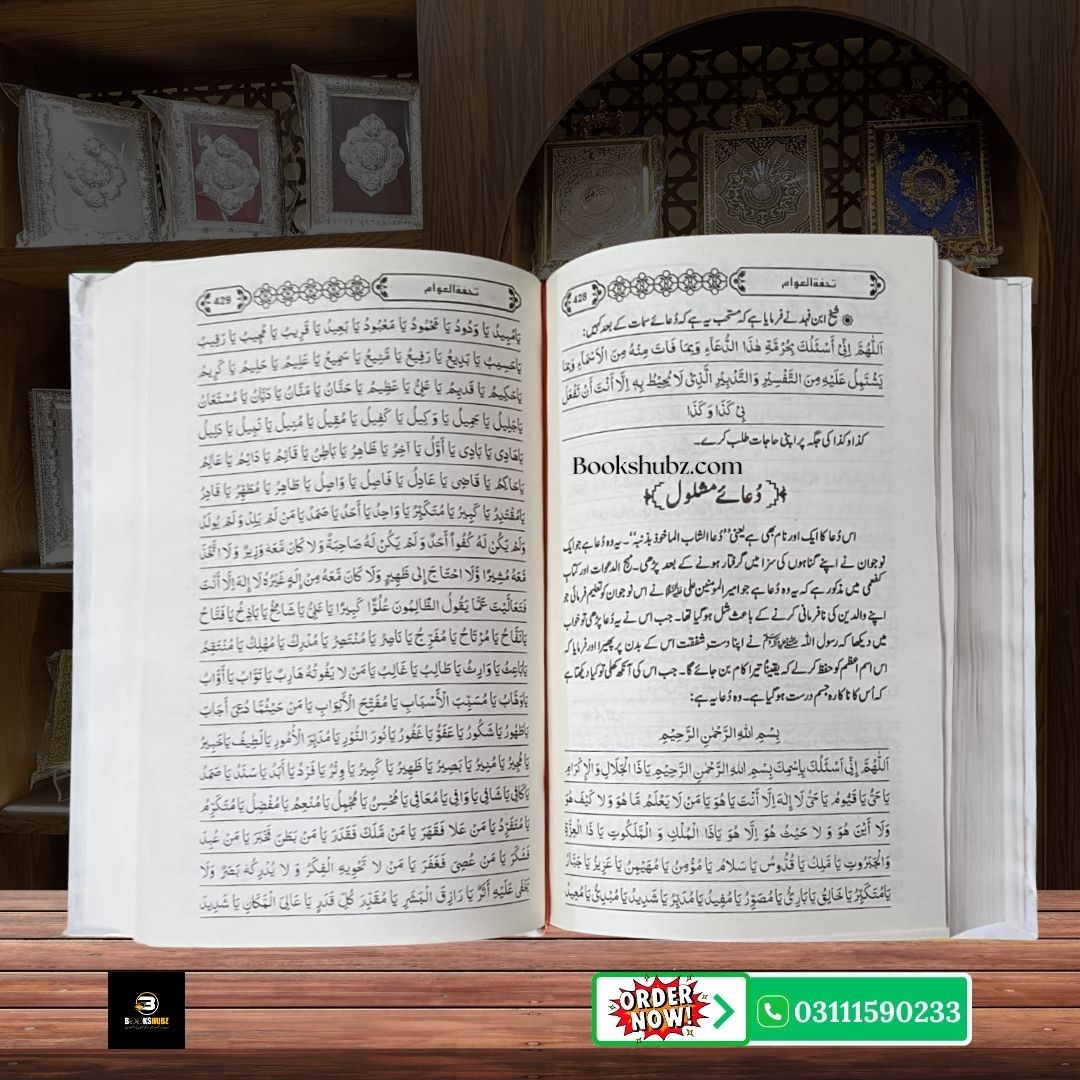 تحفة العوام
428
❁ شیخ ابن فہد نے فرمایا ہے کہ مستحب یہ ہے کہ دُعائے سمات کے بعد کہیں:
اَللّٰهُمَّ اِنِّیْ اَسْئَلُكَ بِحُرْمَةِ هٰذَا الدُّعَآءِ وَبِمَا فَاتَ مِنْهُ مِنَ الْاَسْمَآءِ وَبِمَا
یَشْتَمِلُ عَلَیْهِ مِنَ التَّفْسِیْرِ وَالتَّدْبِیْرِ الَّذِیْ لَا یُحِیْطُ بِهٖ اِلَّا اَنْتَ اَنْ تَفْعَلَ
بِیْ كَذَا وَ كَذَا
کذا و کذا کی جگہ پر اپنی حاجات طلب کرے۔
Bookshubz.com
دُعائے مشلول
اس دُعا کا ایک اور نام بھی ہے یعنی ”دُعا الشاب الماخوذ بذنبہ“۔ یہ وہ دُعا ہے جو ایک
نوجوان نے اپنے گناہوں کی سزا میں گرفتار ہونے کے بعد پڑھی۔ مہج الدعوات اور کتاب
کفعمی میں مذکور ہے کہ یہ وہ دُعا ہے جو امیر المؤمنین علی علیہ السلام نے اس نوجوان کو تعلیم فرمائی جو
اپنے والدین کی نافرمانی کرنے کے باعث شل ہو گیا تھا۔ جب اس نے یہ دُعا پڑھی تو خواب
میں دیکھا کہ رسول اللہ ﷺ نے اپنا دستِ شفقت اس کے بدن پر پھیرا اور فرمایا کہ
اس اسم اعظم کو حفظ کر لے کہ یقیناً تیرا کام بن جائے گا۔ جب اس کی آنکھ کھلی تو کیا دیکھتا ہے
کہ اُس کا ناکارہ جسم درست ہو گیا ہے۔ وہ دُعا یہ ہے:
بِسْمِ اللهِ الرَّحْمٰنِ الرَّحِیْمِ
اَللّٰهُمَّ اِنِّیْ اَسْئَلُكَ بِاسْمِكَ بِسْمِ اللهِ الرَّحْمٰنِ الرَّحِیْمِ یَا ذَا الْجَلَالِ وَالْاِكْرَامِ
یَا حَیُّ یَا قَیُّوْمُ یَا حَیُّ لَا اِلٰهَ اِلَّا اَنْتَ یَا هُوَ یَا مَنْ لَا یَعْلَمُ مَا هُوَ وَلَا كَیْفَ هُوَ
وَلَا اَیْنَ هُوَ وَ لَا حَیْثُ هُوَ اِلَّا هُوَ یَا ذَا الْمُلْكِ وَ الْمَلَكُوْتِ یَا ذَا الْعِزَّةِ
وَالْجَبَرُوْتِ یَا مَلِكُ یَا قُدُّوْسُ یَا سَلَامُ یَا مُؤْمِنُ یَا مُهَیْمِنُ یَا عَزِیْزُ یَا جَبَّارُ
یَا مُتَكَبِّرُ یَا خَالِقُ یَا بَارِئُ یَا مُصَوِّرُ یَا مُفِیْدُ یَا مُدَبِّرُ یَا شَدِیْدُ یَا مُبْدِئُ یَا مُعِیْدُ
تحفة العوام
429
یَا مُبِیْدُ یَا وَدُوْدُ یَا مَحْمُوْدُ یَا مَعْبُوْدُ یَا بَعِیْدُ یَا قَرِیْبُ یَا مُجِیْبُ یَا رَقِیْبُ
یَا حَسِیْبُ یَا بَدِیْعُ یَا رَفِیْعُ یَا مَنِیْعُ یَا سَمِیْعُ یَا عَلِیْمُ یَا حَلِیْمُ یَا كَرِیْمُ
یَا حَكِیْمُ یَا قَدِیْمُ یَا عَلِیُّ یَا عَظِیْمُ یَا حَنَّانُ یَا مَنَّانُ یَا دَیَّانُ یَا مُسْتَعَانُ
یَا جَلِیْلُ یَا جَمِیْلُ یَا وَكِیْلُ یَا كَفِیْلُ یَا مُقِیْلُ یَا مُنِیْلُ یَا نَبِیْلُ یَا دَلِیْلُ
یَا هَادِیْ یَا بَادِیْ یَا اَوَّلُ یَا اٰخِرُ یَا ظَاهِرُ یَا بَاطِنُ یَا قَائِمُ یَا دَائِمُ یَا عَالِمُ
یَا حَاكِمُ یَا قَاضِیْ یَا عَادِلُ یَا فَاصِلُ یَا وَاصِلُ یَا طَاهِرُ یَا مُطَهِّرُ یَا قَادِرُ
یَا مُقْتَدِرُ یَا كَبِیْرُ یَا مُتَكَبِّرُ یَا وَاحِدُ یَا اَحَدُ یَا صَمَدُ یَا مَنْ لَمْ یَلِدْ وَلَمْ یُوْلَدْ
وَلَمْ یَكُنْ لَهٗ كُفُوًا اَحَدٌ وَلَمْ یَكُنْ لَهٗ صَاحِبَةٌ وَلَا كَانَ مَعَهٗ وَزِیْرٌ وَلَا اتَّخَذَ
مَعَهٗ مُشِیْرًا وَّلَا احْتَاجَ اِلٰی ظَهِیْرٍ وَلَا كَانَ مَعَهٗ مِنْ اِلٰهٍ غَیْرُهٗ لَا اِلٰهَ اِلَّا اَنْتَ
فَتَعَالَیْتَ عَمَّا یَقُوْلُ الظَّالِمُوْنَ عُلُوًّا كَبِیْرًا یَا عَلِیُّ یَا شَامِخُ یَا بَاذِخُ یَا فَتَّاحُ
یَا نَفَّاحُ یَا مُرْتَاحُ یَا مُفَرِّجُ یَا نَاصِرُ یَا مُنْتَصِرُ یَا مُدْرِكُ یَا مُهْلِكُ یَا مُنْتَقِمُ
یَا بَاعِثُ یَا وَارِثُ یَا طَالِبُ یَا غَالِبُ یَا مَنْ لَا یَفُوْتُهٗ هَارِبٌ یَا تَوَّابُ یَا اَوَّابُ
یَا وَهَّابُ یَا مُسَبِّبَ الْاَسْبَابِ یَا مُفَتِّحَ الْاَبْوَابِ یَا مَنْ حَیْثُمَا دُعِیَ اَجَابَ
یَا طَهُوْرُ یَا شَكُوْرُ یَا عَفُوُّ یَا غَفُوْرُ یَا نُوْرَ النُّوْرِ یَا مُدَبِّرَ الْاُمُوْرِ یَا لَطِیْفُ یَا خَبِیْرُ
یَا مُجِیْرُ یَا مُنِیْرُ یَا بَصِیْرُ یَا ظَهِیْرُ یَا كَبِیْرُ یَا وِتْرُ یَا فَرْدُ یَا اَبَدُ یَا سَنَدُ یَا صَمَدُ
یَا كَافِیْ یَا شَافِیْ یَا وَافِیْ یَا مُعَافِیْ یَا مُحْسِنُ یَا مُجْمِلُ یَا مُنْعِمُ یَا مُفْضِلُ یَا مُتَكَرِّمُ
یَا مُتَفَرِّدُ یَا مَنْ عَلَا فَقَهَرَ یَا مَنْ مَلَكَ فَقَدَرَ یَا مَنْ بَطَنَ فَخَبَرَ یَا مَنْ عُبِدَ
فَشَكَرَ یَا مَنْ عُصِیَ فَغَفَرَ یَا مَنْ لَا تَحْوِیْهِ الْفِكَرُ وَ لَا یُدْرِكُهٗ بَصَرٌ وَلَا
یَخْفٰی عَلَیْهِ اَثَرٌ یَا رَازِقَ الْبَشَرِ یَا مُقَدِّرَ كُلِّ قَدَرٍ یَا عَالِیَ الْمَكَانِ یَا شَدِیْدَ
BOOKSHUBZ
ORDER NOW!
03111590233